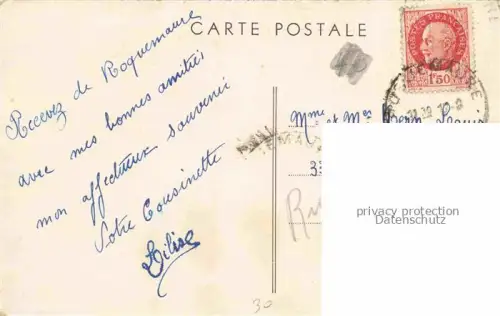 CARTE POSTALE
POSTES FRANÇAISES
1F50
Recevez de Roquemaure
avec mes bonnes amitiés
mon affectueux souvenir
Votre Cousinette
Lilise
Mme et Mr
privacy protection
Datenschutz
30